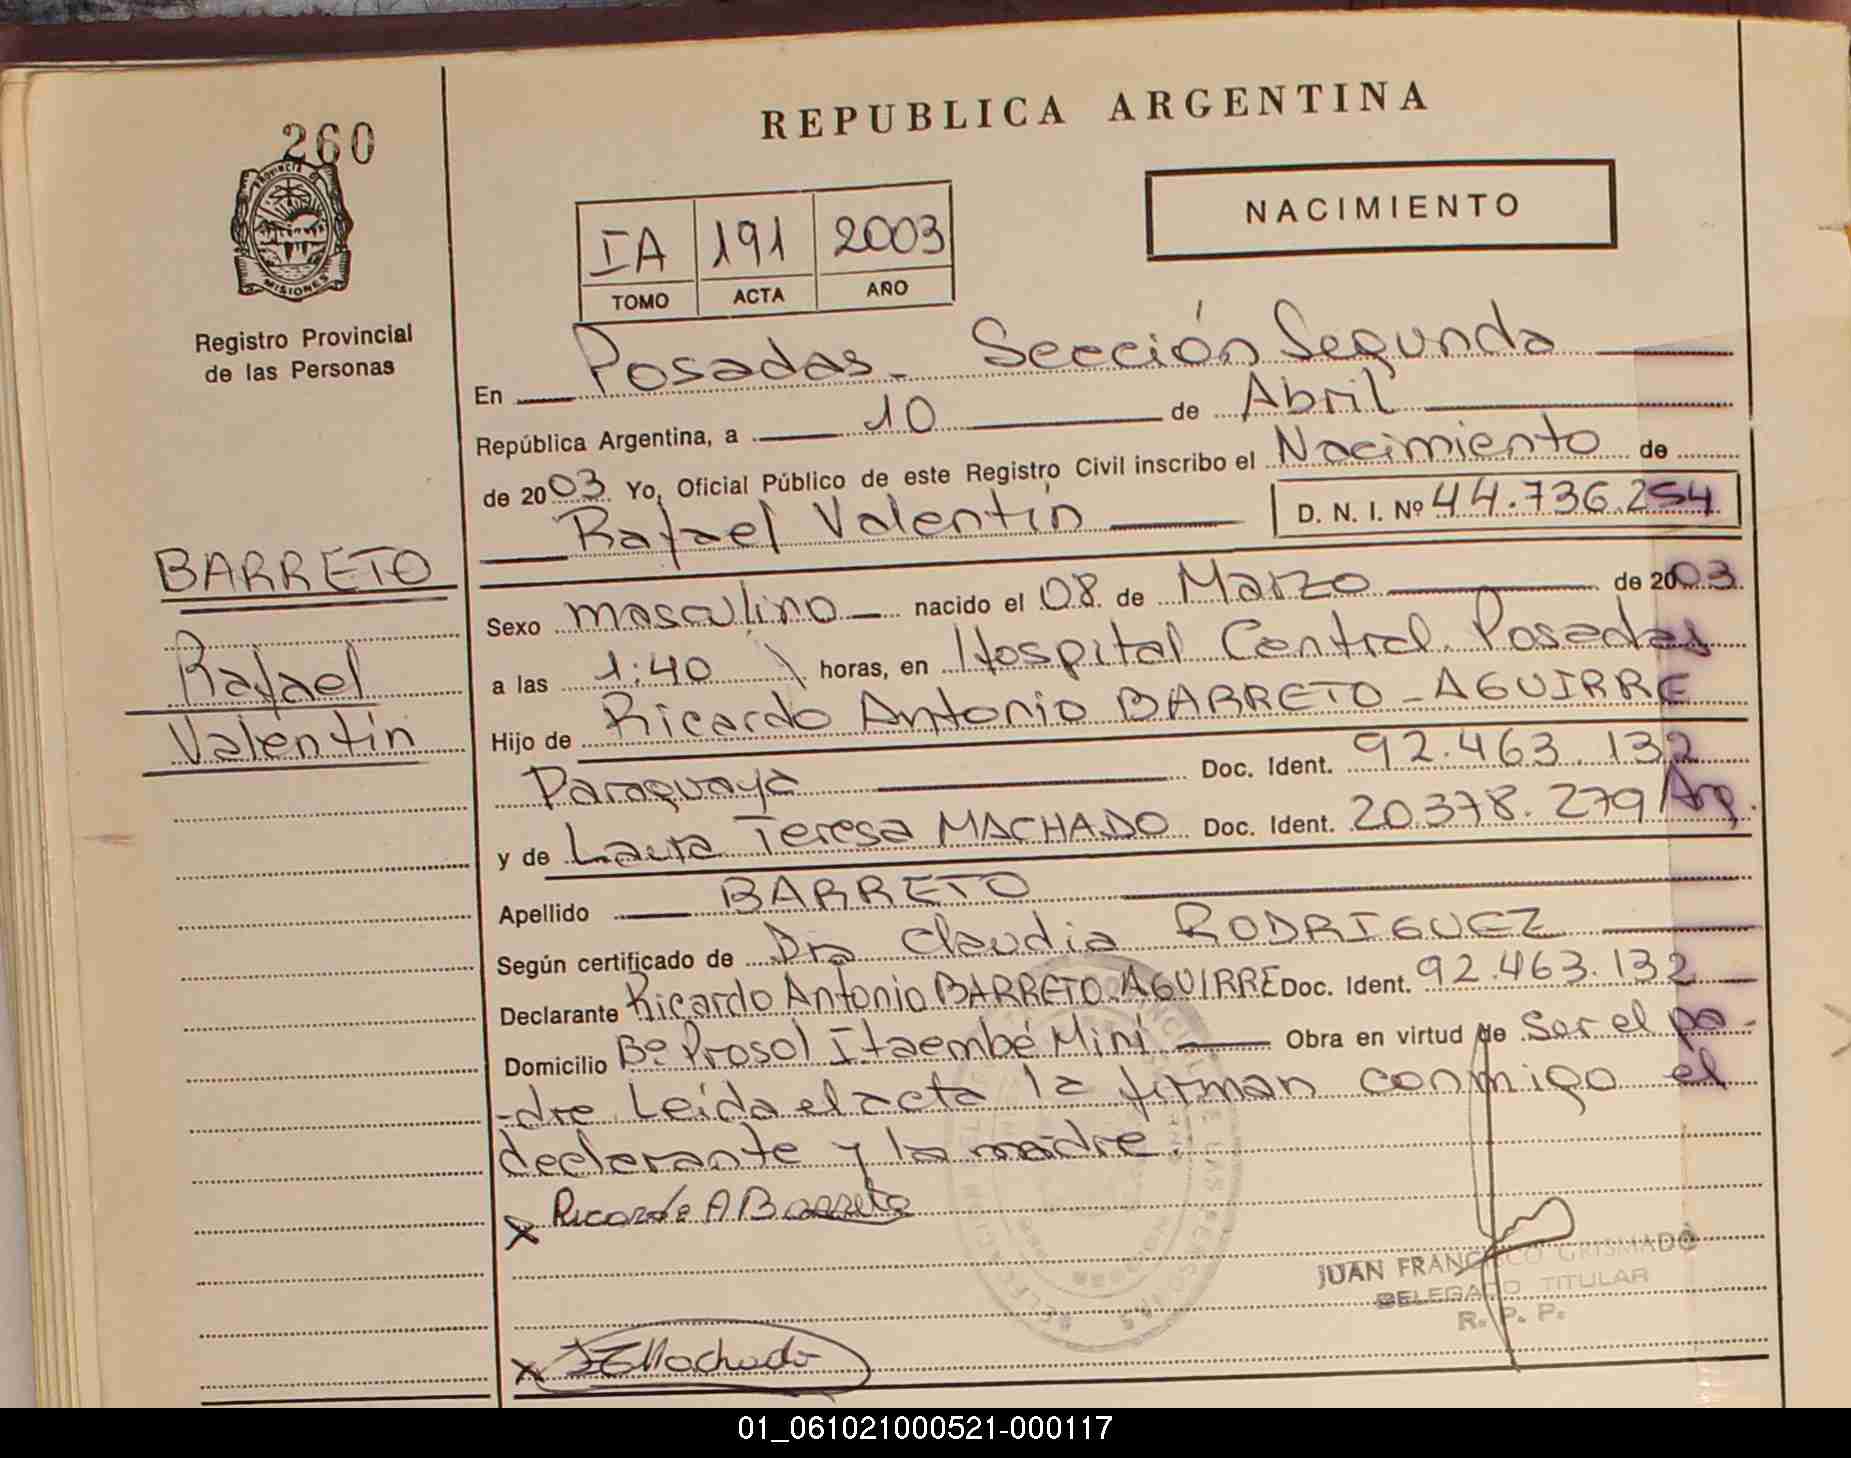 260
PROVINCIA DE
MISIONES
Registro Provincial
de las Personas
REPUBLICA ARGENTINA
NACIMIENTO
IA 191 2003
TOMO ACTA AÑO
En Posadas - Sección Segunda
República Argentina, a 10 de Abril
de 2003 Yo, Oficial Público de este Registro Civil inscribo el Nacimiento de
Rafael Valentín D. N. I. Nº 44.736.254
BARRETO
Rafael
Valentín
Sexo masculino nacido el 08 de Marzo de 2003
a las 1:40 horas, en Hospital Central. Posadas
Hijo de Ricardo Antonio BARRETO - AGUIRRE
Paraguaya Doc. Ident. 92.463.132
y de Laura Teresa MACHADO Doc. Ident. 20.378.279 Arg.
Apellido BARRETO
Según certificado de Dra Claudia RODRIGUEZ
Declarante Ricardo Antonio BARRETO-AGUIRRE Doc. Ident. 92.463.132
Domicilio Bº Prosol Itaembé Miní Obra en virtud de Ser el pa-
-dre. Leída el acta la firman conmigo el
declarante y la madre.
x Ricardo A Barreto
JUAN FRANCISCO GRISMADO
DELEGADO TITULAR
R. P. P.
x Machado
01_061021000521-000117